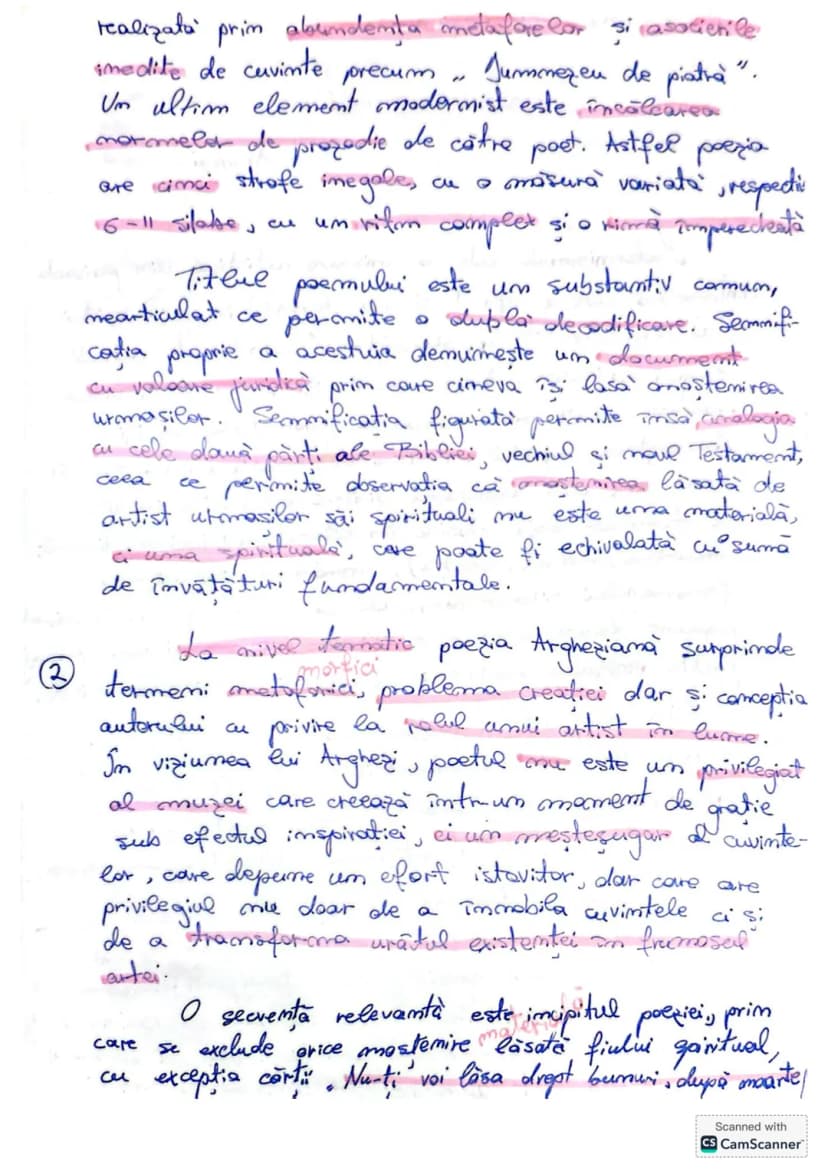 realizată prin abundența metaforelor și asocierile
inedite de cuvinte precum „Dumnezeu de piatră”.
Un ultim element modernist este încălcarea
normelor de prozodie de către poet. Astfel poezia
are cinci strofe inegale, cu o măsură variată, respectiv
6-11 silabe, cu un ritm complet și o rimă împerecheată
Titlul poemului este un substantiv comun,
nearticulat ce permite o dublă decodificare. Semnifi-
cația proprie a acestuia denumește un document
cu valoare juridică prin care cineva își lasă moștenirea
urmașilor. Semnificația figurată permite însă, analogia
cu cele două părți ale Bibliei, vechiul și noul Testament,
ceea ce permite observația că moștenirea lăsată de
artist urmașilor săi spirituali nu este una materială,
ci una spirituală, care poate fi echivalată cu o sumă
de învățături fundamentale.
La nivel tematic poezia Argheziană surprinde
morfici
② termeni metaforici, problema creației dar și concepția
autorului cu privire la rolul unui artist în lume.
În viziunea lui Arghezi, poetul nu este un privilegiat
al muzei care creează într-un moment de grație
sub efectul inspirației, ci un meșteșugar al cuvinte-
lor, care depune un efort istovitor, dar care are
privilegiul nu doar de a înnobila cuvintele ci și
de a transforma urâtul existenței în frumosul
artei.
O secvență relevantă este incipitul poeziei, prin
materială
care se exclude orice moștenire lăsată fiului spiritual,
cu excepția cărții. „Nu-ți voi lăsa drept bunuri, după moarte/
Scanned with
CS CamScanner